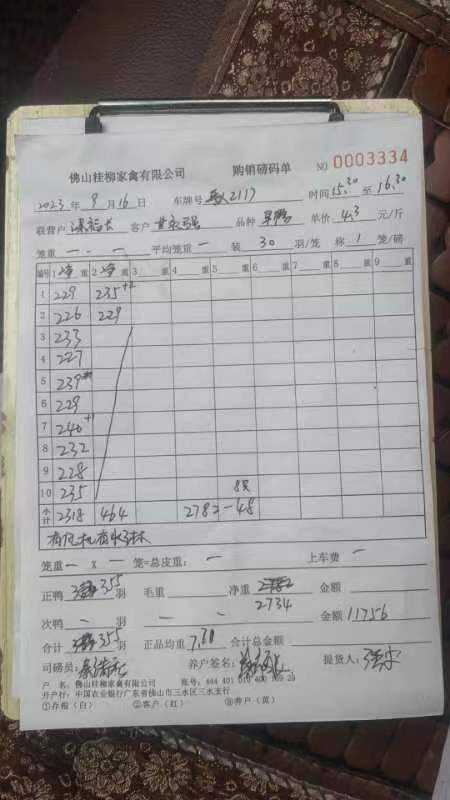 佛山桂柳家禽有限公司 购销磅码单 NO 0003334
2023 年 9 月 16 日 车牌号 2117 时间 15.30 至 16.30
联营户 客户 品种 单价 4.3 元/斤
笼重 一 . 一 平均笼重 一 装 30 羽/笼 称 1 笼/磅
编号 1 净 重 2 净 重 3 重 4 重 5 重 6 重 7 重 8 重 9 重
1 229 235 +2
2 226 229
3 233
4 227
5 239
6 229
7 240 +1
8 232
9 228
10 235 8只
小计 2318 464 2782 - 48
有风机有水帘
笼重 一 x 一 笼=总皮重: 一 上车费 一
正鸭 355 羽 毛重 净重 2782 金额
2734
次鸭 一 羽 一 一 金额 11756
合计 355 羽 正品均重 7.70 合计总金额
司磅员: 养户签名: 提货人:
户 名: 佛山桂柳家禽有限公司
开户行: 中国农业银行广东省佛山市三水区三水支行
①存根(白) ②客户(红) ③养户(黄)